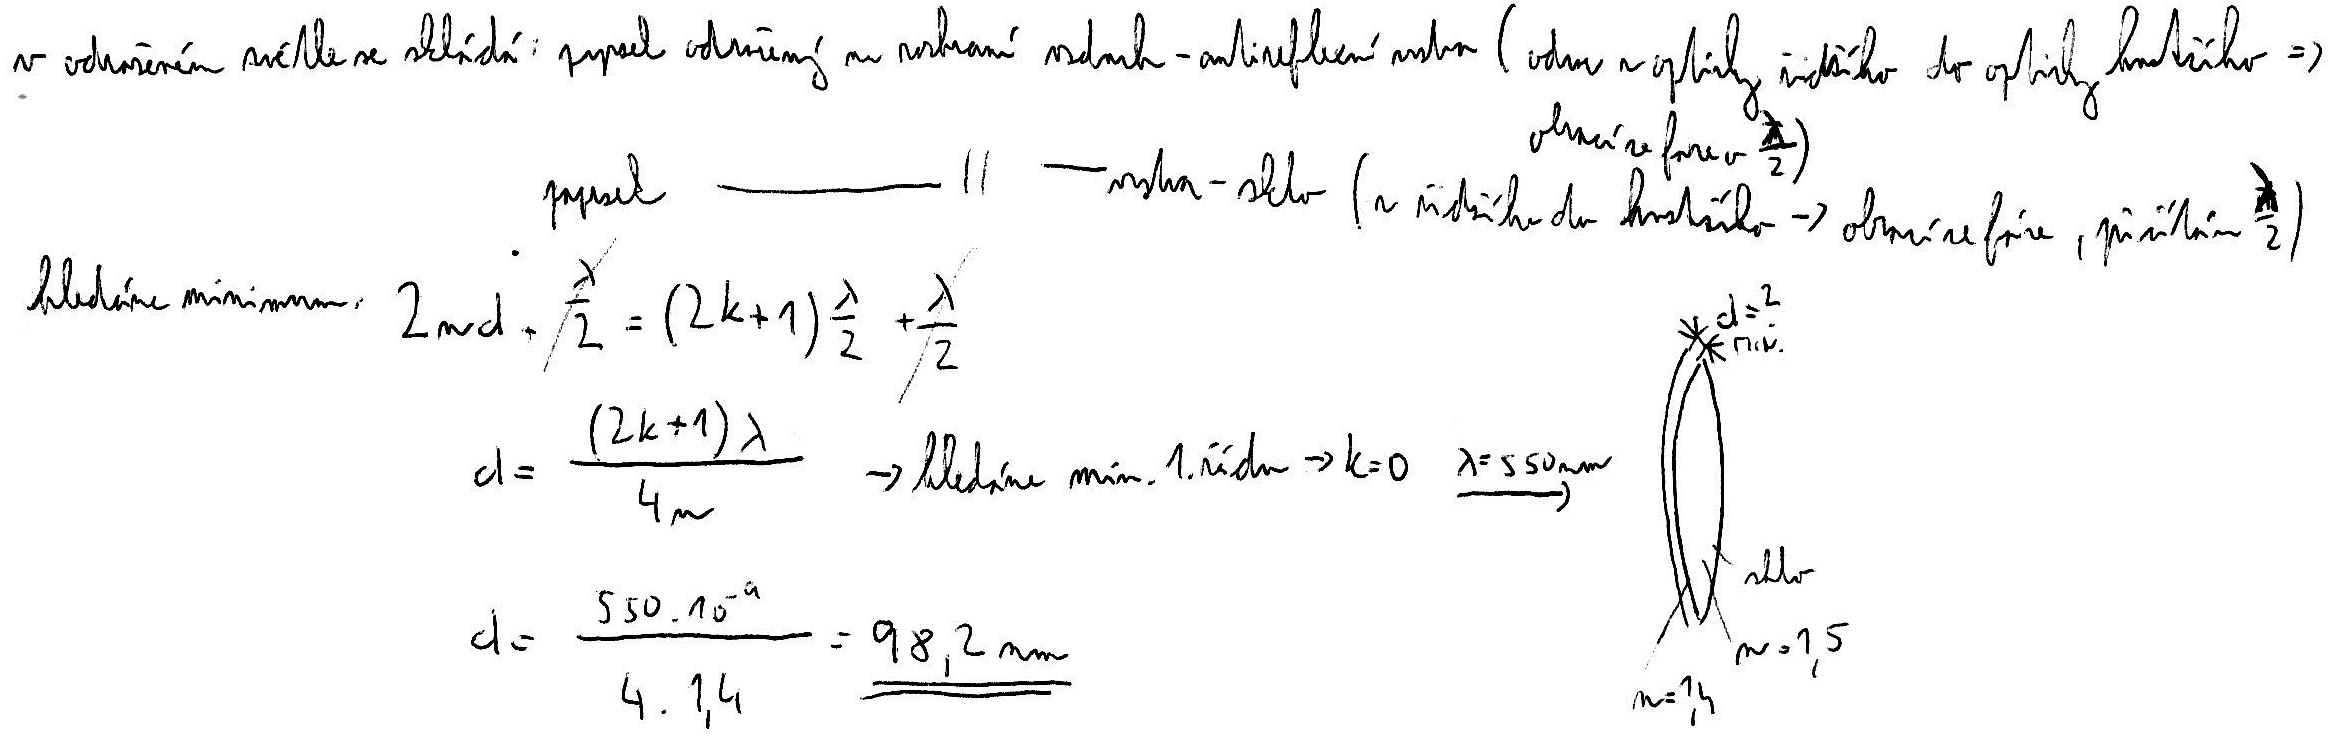 v odraženém světle se skládá: paprsek odražený na rozhraní vzduch-antireflexní vrstva (odraz z opticky řidšího do opticky hustšího =>
obrací se fáze o λ/2)
paprsek —— || —— vrstva-sklo (z řidšího do hustšího -> obrací se fáze, přičítám λ/2)
hledáme minimum: 2nd + λ/2 = (2k+1) λ/2 + λ/2
d=?
min.
d = (2k+1)λ / 4n -> hledáme min. 1. řádu -> k=0 λ=550nm
sklo
d = 550.10⁻⁹ / 4.1,4 = 98,2 nm
n=1,5
n=1,4